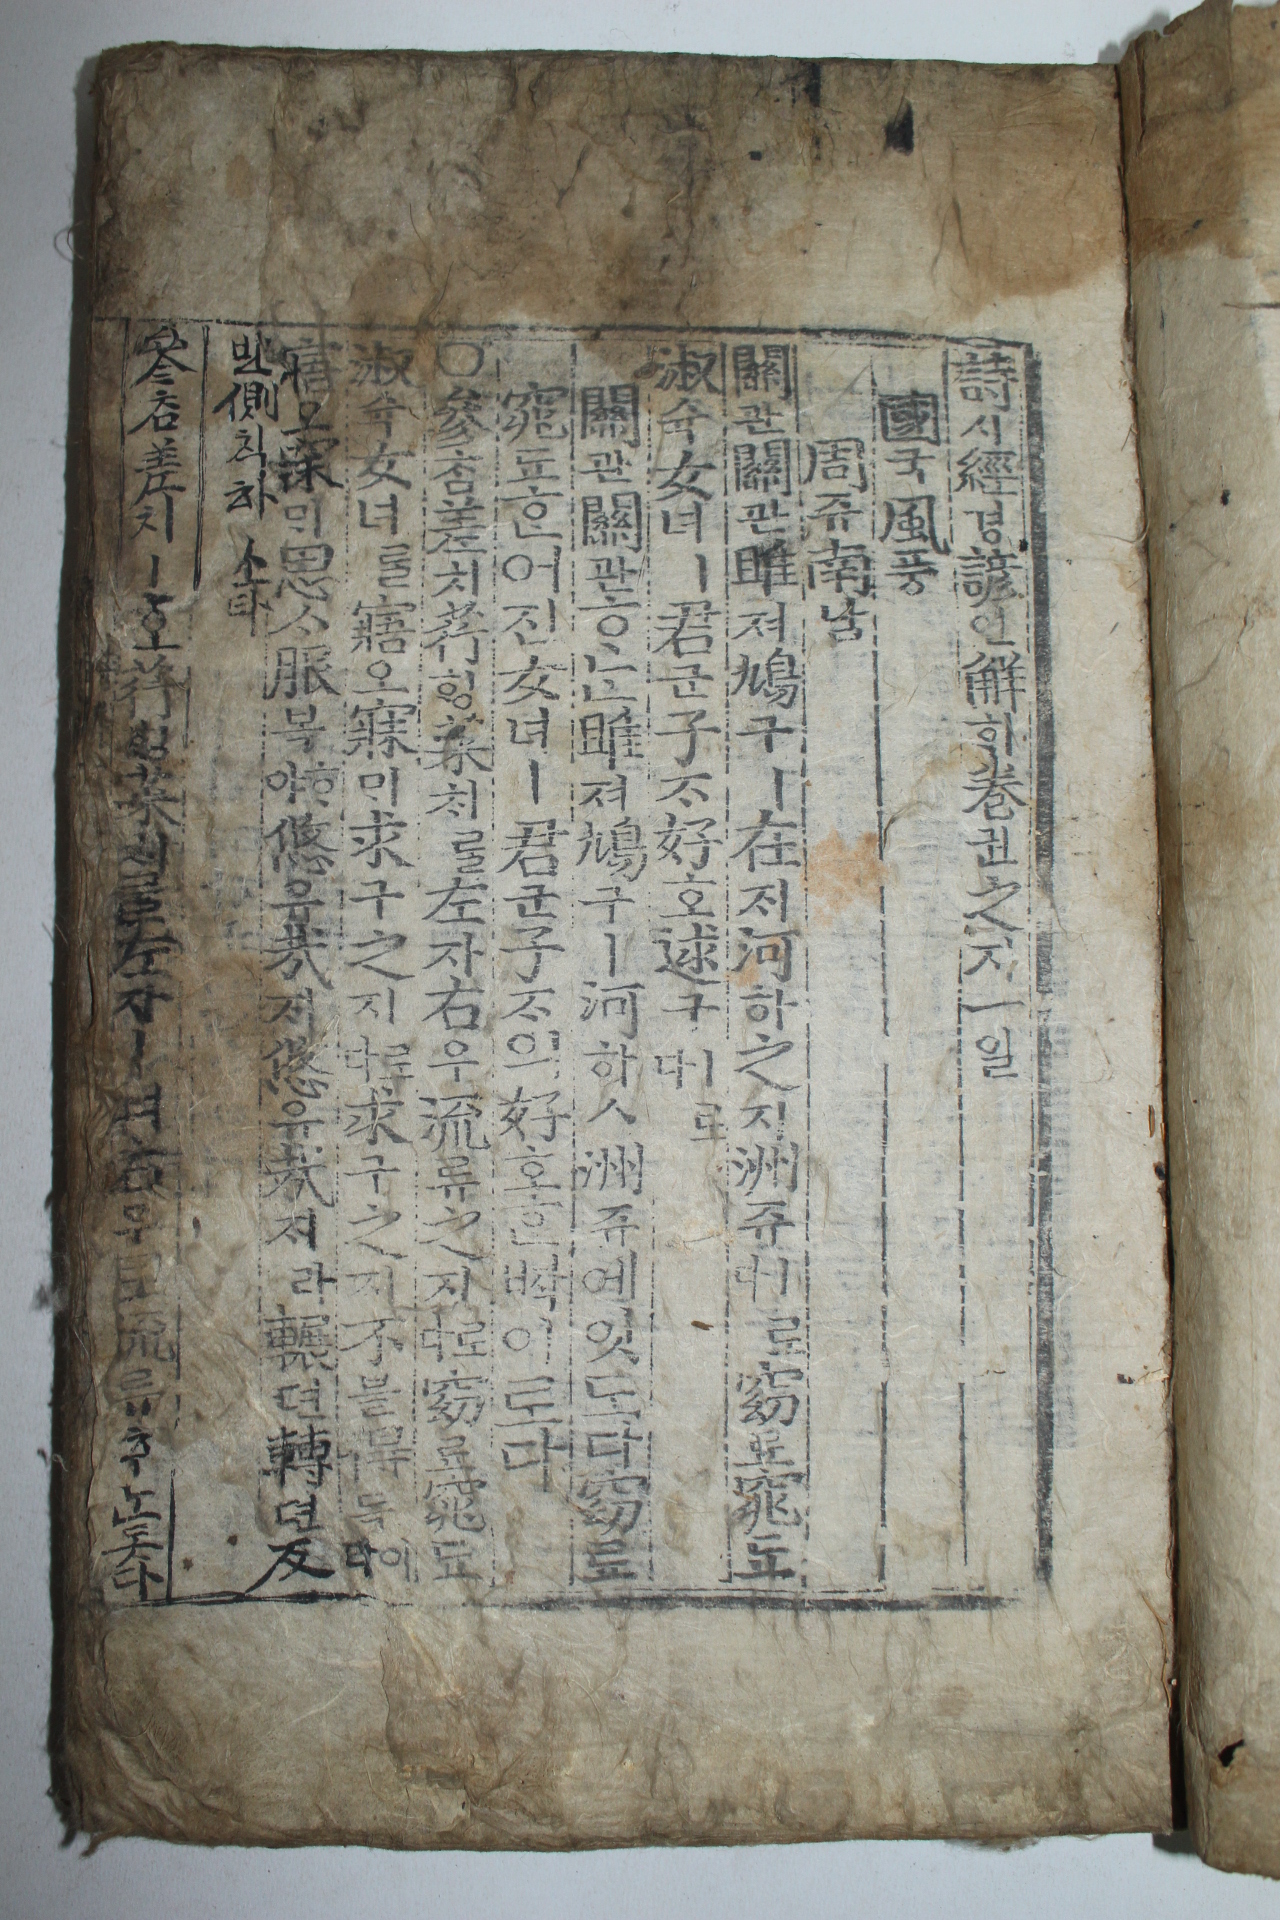 詩시經경諺언解ᄒᆡ卷권之지一일
國국風풍
周쥬南남
關관關관雎져鳩구ㅣ在ᄌᆡ河하之지洲쥬ㅣ로다窈요窕됴
淑슉女녀ㅣ君군子ᄌᆞ好호逑구ㅣ로다
關관關관ᄒᆞᄂᆞᆫ雎져鳩구ㅣ河하ㅅ洲쥬에잇도다窈요
窕됴ᄒᆞᆫ어진女녀ㅣ君군子ᄌᆞ의好호ᄒᆞᆫᄧᅡᆨ이로다
○參ᄎᆞᆷ差치荇ᄒᆡᆼ菜ᄎᆡ를左자右우流류之지로다窈요窕됴
淑슉女녀를寤오寐ᄆᆡ求구之지로다求구之지不블得득이라
寤오寐ᄆᆡ思ᄉᆞ服복ᄒᆞ야悠유哉ᄌᆡ悠유哉ᄌᆡ라輾뎐轉뎐反
반側칙ᄒᆞ
參ᄎᆞᆷ差치ㅣ荇ᄒᆡᆼ菜ᄎᆡ를左자ㅣ며右우로流류ᄒᆞ놋다